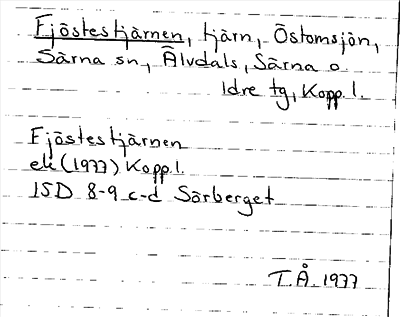 Fjöstestjärnen, tjärn, Östomsjön,
Särna sn, Älvdals, Särna o
Idre tg, Kopp. l.
Fjöstestjärnen
ek (1977) Kopp. l.
15D 8-9 c-d Särberget
T. Å. 1977